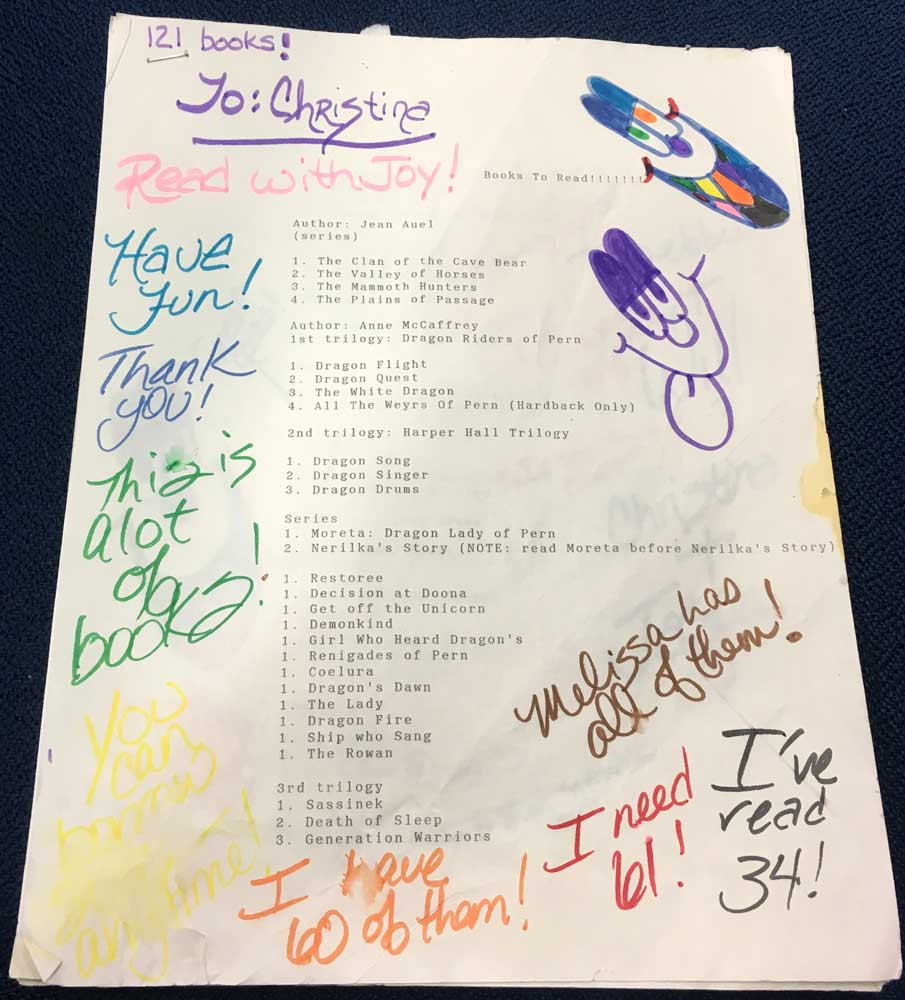 121 books!
To: Christine
Read with Joy!
Books To Read!!!!!!!
Have
fun!
Thank
you!
This is
alot
of
books!
You
can
borrow
anytime!
Author: Jean Auel
(series)
1. The Clan of the Cave Bear
2. The Valley of Horses
3. The Mammoth Hunters
4. The Plains of Passage
Author: Anne McCaffrey
1st trilogy: Dragon Riders of Pern
1. Dragon Flight
2. Dragon Quest
3. The White Dragon
4. All The Weyrs Of Pern (Hardback Only)
2nd trilogy: Harper Hall Trilogy
1. Dragon Song
2. Dragon Singer
3. Dragon Drums
Series
1. Moreta: Dragon Lady of Pern
2. Nerilka's Story (NOTE: read Moreta before Nerilka's Story)
1. Restoree
1. Decision at Doona
1. Get off the Unicorn
1. Demonkind
1. Girl Who Heard Dragon's
1. Renigades of Pern
1. Coelura
1. Dragon's Dawn
1. The Lady
1. Dragon Fire
1. Ship who Sang
1. The Rowan
3rd trilogy
1. Sassinek
2. Death of Sleep
3. Generation Warriors
Melissa has
all of them!
I have
60 of them!
I need
61!
I've
read
34!